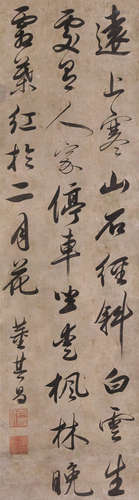 遠上寒山石徑斜白雲生
處有人家停車坐愛楓林晚
霜葉紅於二月花
董其昌